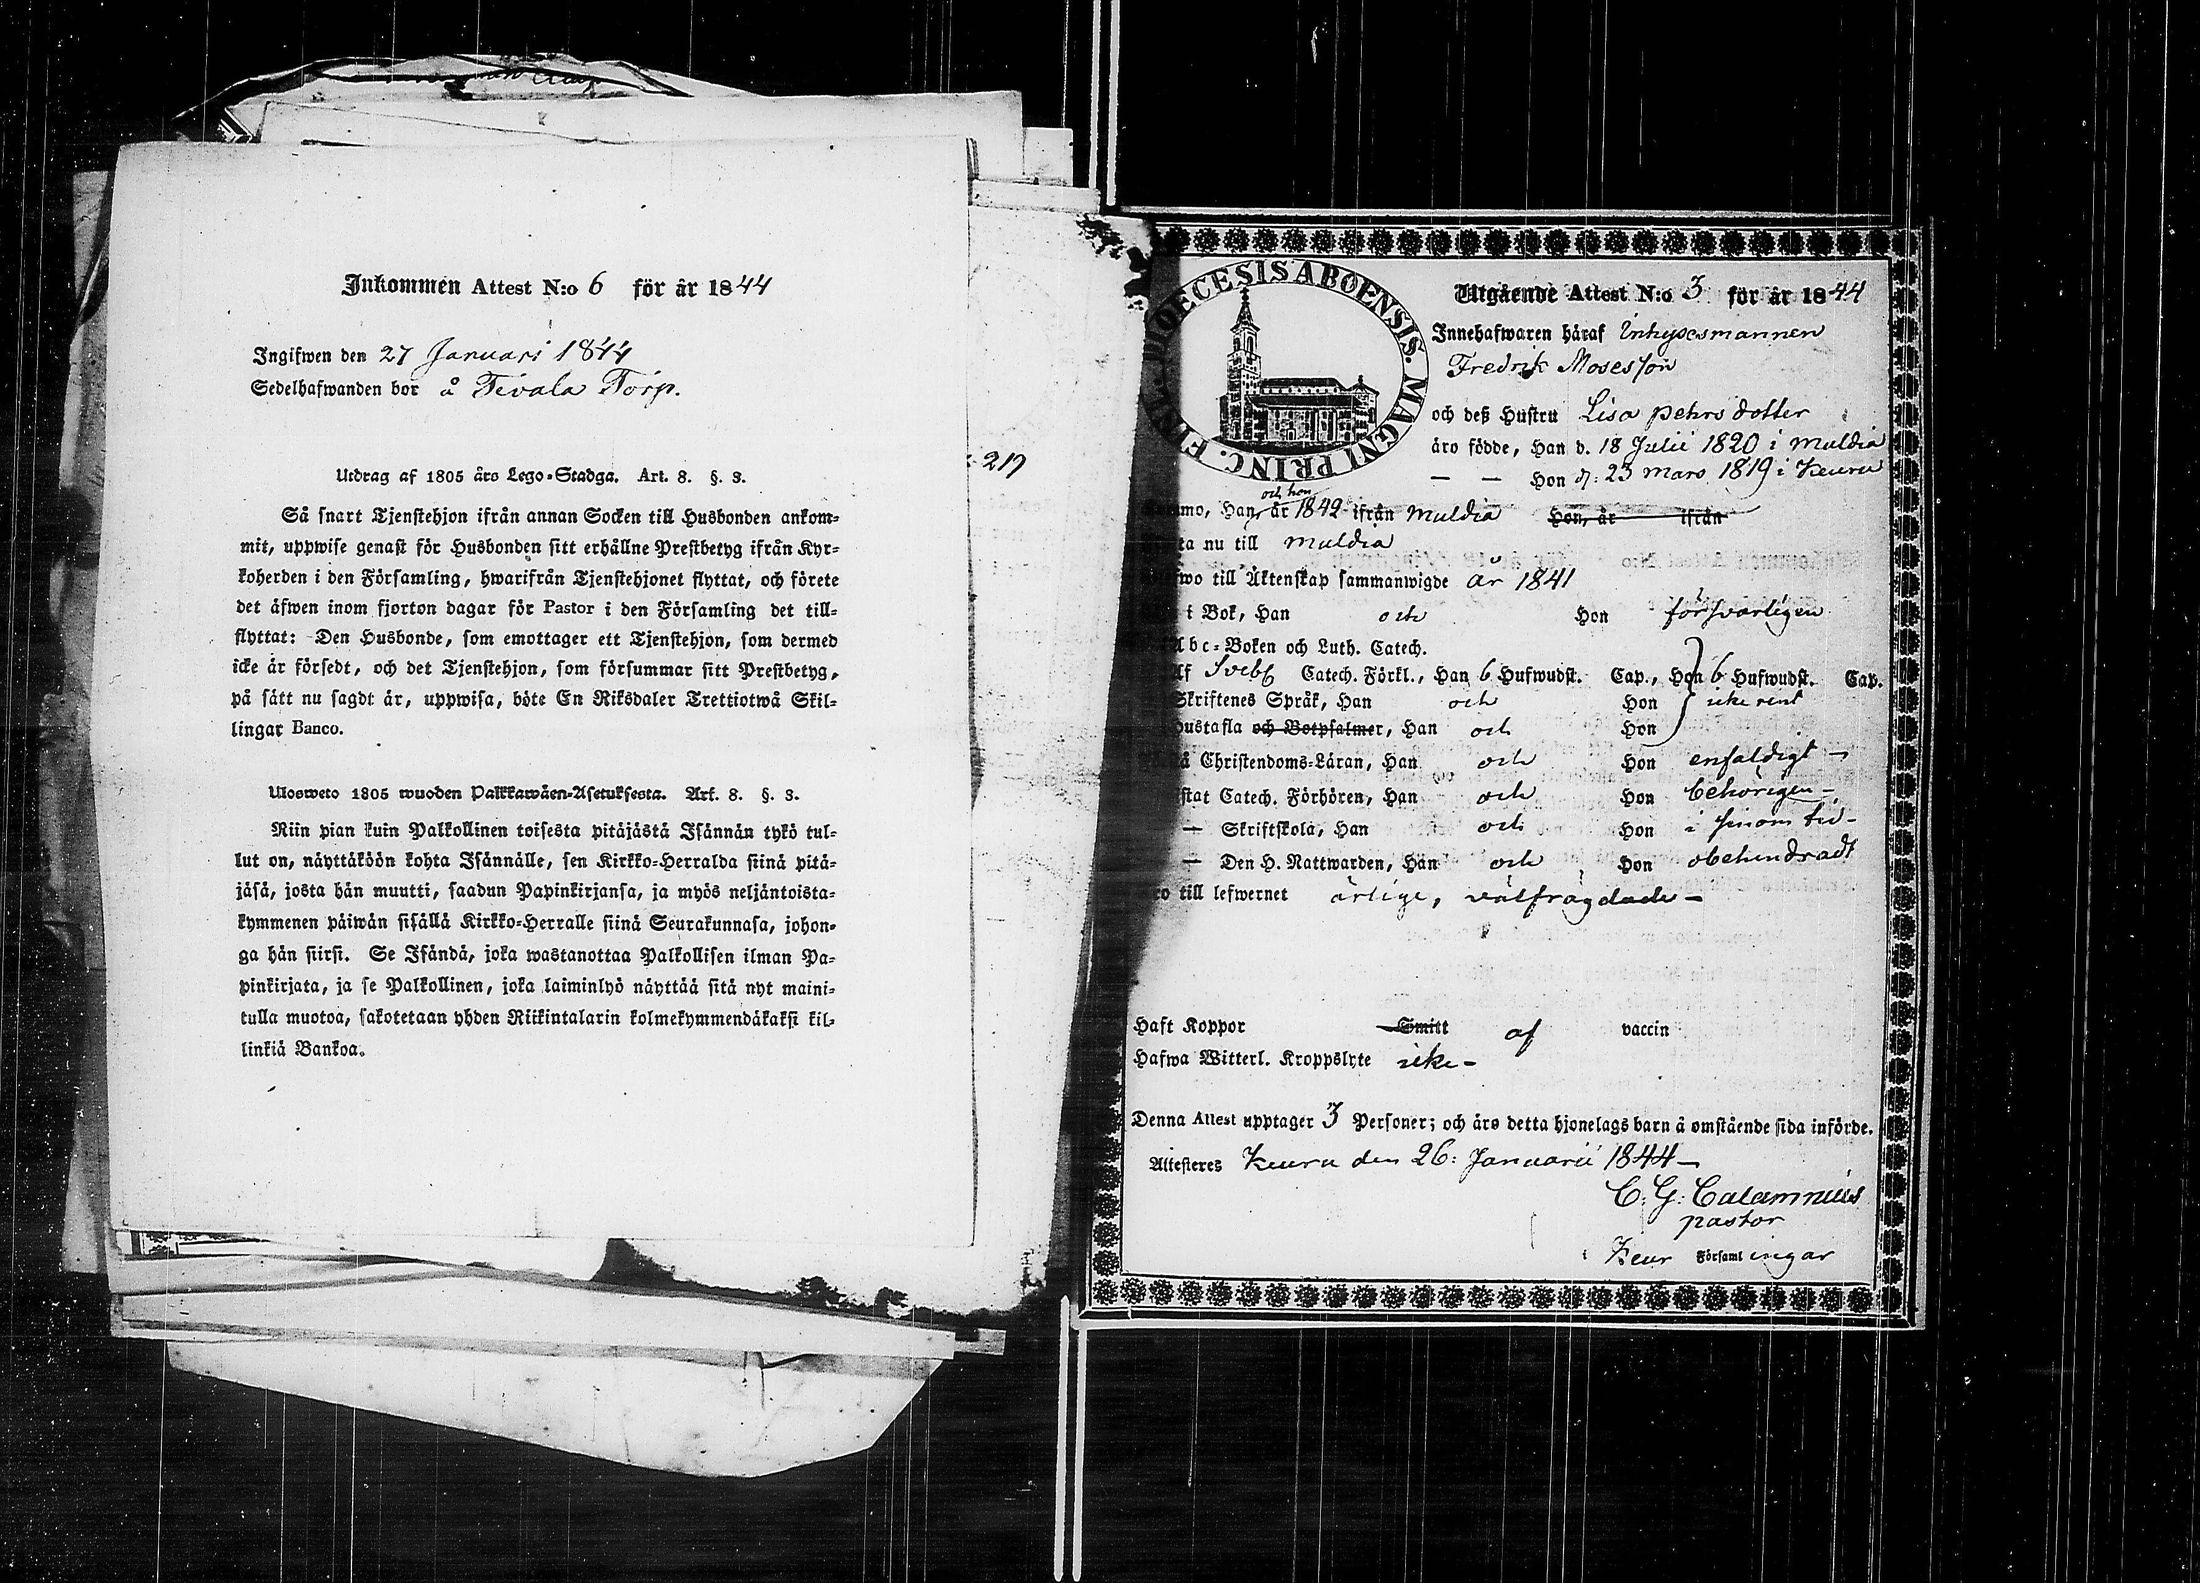 Inkommen Attest N:o 6 för år 1844
Ingifwen den 27 Januari 1844
Sedelhafwanden bor å Tevala Torp.
Utdrag af 1805 års Lego-Stadga. Art. 8. §. 3.
Så snart Tjenstehjon ifrån annan Socken till Husbonden ankom-
mit, uppwise genast för Husbonden sitt erhållne Prestbetyg ifrån Kyr-
koherden i den Församling, hwarifrån Tjenstehjonet flyttat, och förete
det äfwen inom fjorton dagar för Pastor i den Församling det till-
flyttat: Den Husbonde, som emottager ett Tjenstehjon, som dermed
icke är försedt, och det Tjenstehjon, som försummar sitt Prestbetyg,
på sätt nu sagdt är, uppwisa, böte En Riksdaler Trettiotwå Skil-
lingar Banco.
Ulosweto 1805 wuoden Palkkawäen-Asetuksesta. Art. 8. §. 3.
Niin pian kuin Palkollinen toisesta pitäjästä Isännän tykö tul-
lut on, näyttäköön kohta Isännälle, sen Kirkko-Herralda siinä pitä-
jäsä, josta hän muutti, saadun Papinkirjansa, ja myös neljäntoista-
kymmenen päiwän sisällä Kirkko-Herralle siinä Seurakunnasa, johon-
ga hän siirsi. Se Isändä, joka wastanottaa Palkollisen ilman Pa-
pinkirjata, ja se Palkollinen, joka laiminlyö näyttää sitä nyt maini-
tulla muotoa, sakotetaan yhden Riikintalarin kolmekymmendäkaksi kil-
linkiä Bankoa.
219
DIOECESIS ABOENSIS. MAGNI PRINC.
Utgående Attest N:o 3 för år 1844
Innehafwaren häraf Inhysesmannen
Fredrik Mosesson
och deß Hustru Lisa pehrs dotter
äro födde, Han d. 18 Julii 1820 i Muldia
— — Hon d: 23 mars 1819 i Keuru
och hon
Han, år 1842 ifrån Muldia Hon, år ifrån
nu till Muldia
till Äktenskap sammanwigde år 1841
i Bok, Han och Hon försvarligen
Abc-Boken och Luth. Catech.
Af Sveb Catech. Förkl., Han 6 Hufwudst. Cap., Hon 6 Hufwudst. Cap.
Skriftenes Språk, Han och Hon icke rent
Hustafla och Botpsalmer, Han och Hon
Christendoms-Läran, Han och Hon enfaldigt —
Catech. Förhören, Han och Hon behörigen —
— Skriftskola, Han och Hon i sinom tid —
— Den H. Nattwarden, Han och Hon obehindradt
till lefwernet ärlige, välfrägdade —
Haft Koppor Smitt af vaccin
Hafwa Witterl. Kroppslyte icke —
Denna Attest upptager 3 Personer; och äro detta hjonelags barn å omstående sida införde.
Attesteres Keuru den 26: Januarii 1844 —
C: G: Calamnius
pastor
i Keur Församlingar